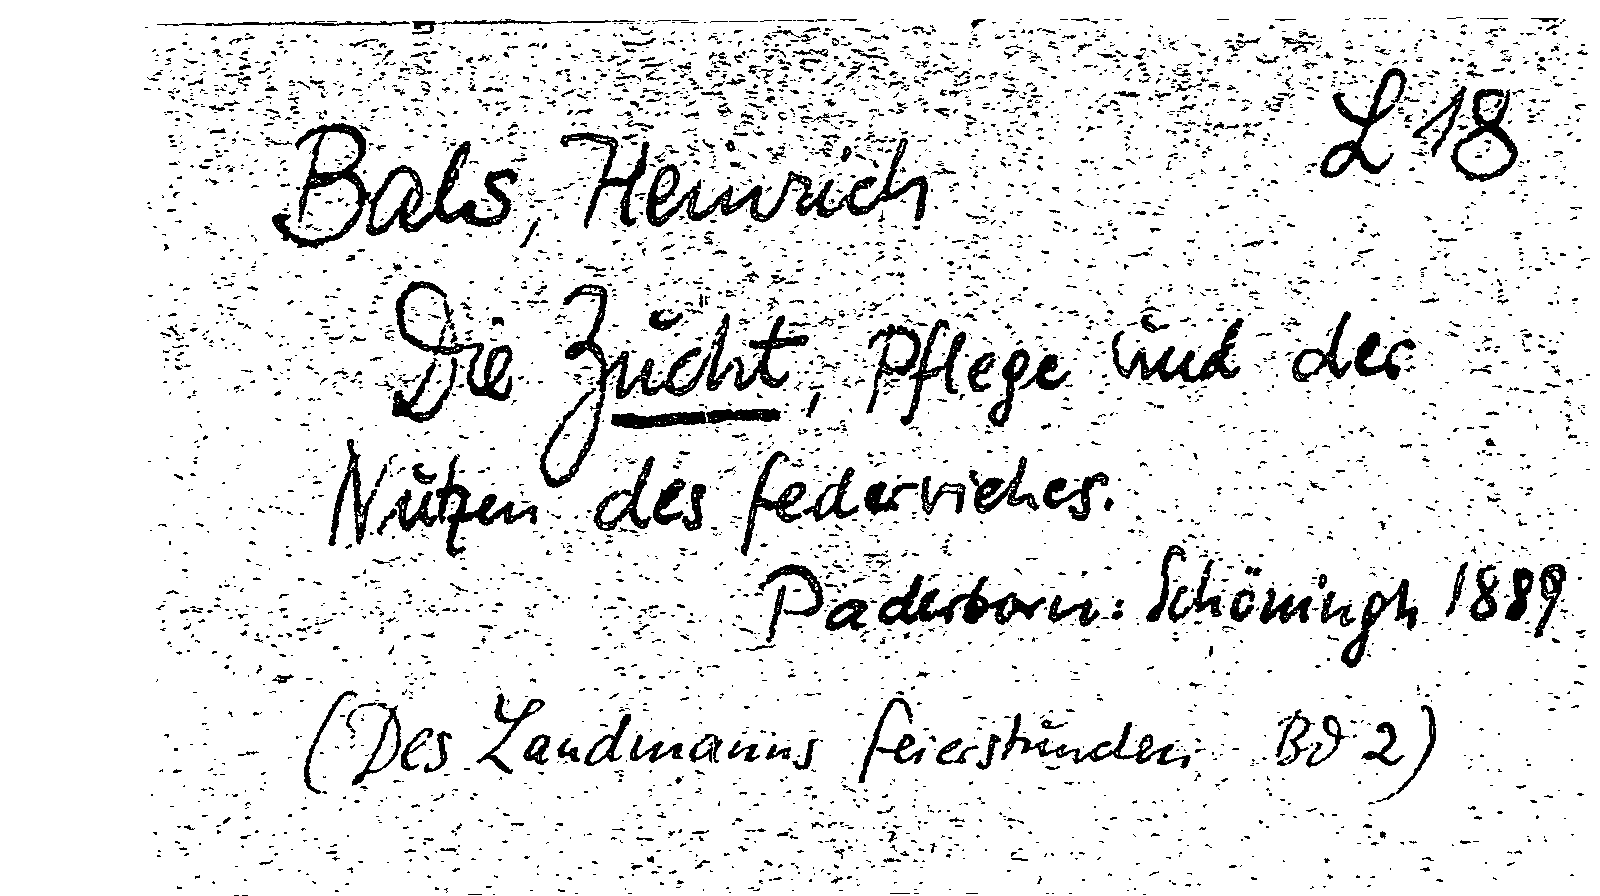 L 18
Bals, Heinrich
Die Zucht, Pflege und der
Nutzen des Federviehes.
Paderborn: Schöningh 1889
(Des Landmanns Feierstunden Bd 2)